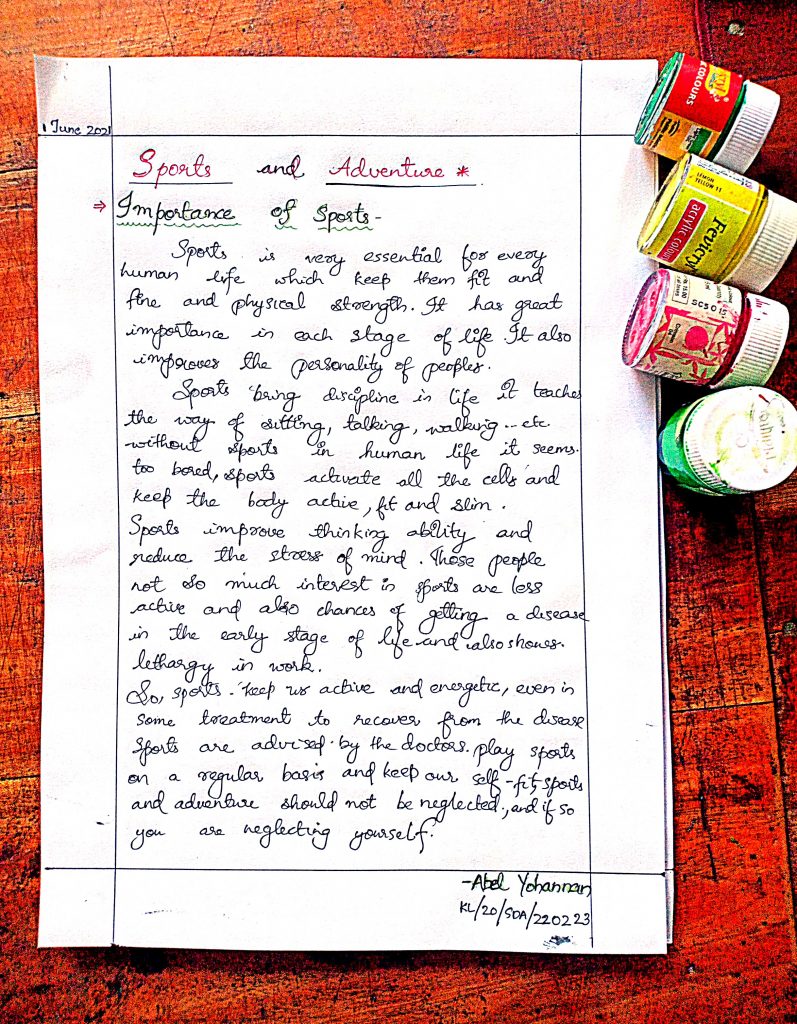 1 June 2021
Sports and Adventure *
⇒ Importance of Sports -
Sports is very essential for every
human life which keep them fit and
fine and physical strength. It has great
importance in each stage of life It also
improves the personality of peoples.
Sports bring discipline in life it teaches
the way of sitting, talking, walking... etc
without sports in human life it seems
too bored, sports activate all the cells and
keep the body active, fit and slim.
Sports improve thinking ability and
reduce the stress of mind. Those people
not so much interest in sports are less
active and also chances of getting a disease
in the early stage of life and also shows
lethargy in work.
So, sports keep us active and energetic, even in
some treatment to recover from the disease
sports are advised by the doctors. play sports
on a regular basis and keep our self-fit, sports
and adventure should not be neglected, and if so
you are neglecting yourself.
- Abel Yohannan
KL/20/SDA/220223
COLOURS
LEMON
YELLOW 11
Fevicryl
acrylic colour